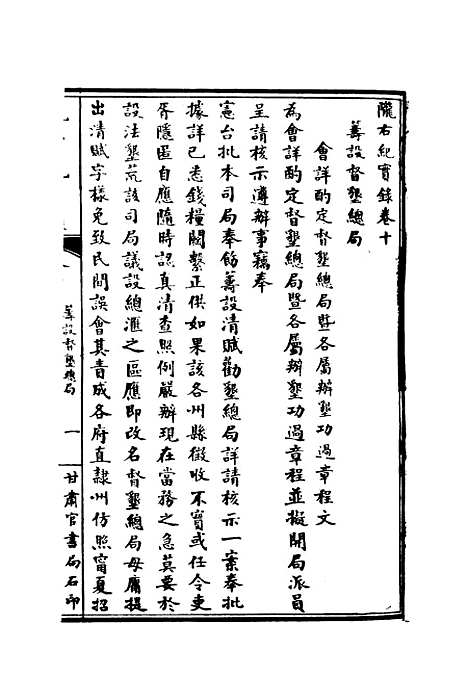 隴右紀實錄卷十
籌設督墾總局
會詳酌定督墾總局暨各屬辦墾功過章程文
為會詳酌定督墾總局暨各屬辦墾功過章程並擬開局派員
呈請核示遵辦事竊奉
憲台批本司局奉飭籌設清賦勸墾總局詳請核示一案奉批
據詳已悉錢糧關繫正供如果該各州縣徵收不實或任令吏
胥隱匿自應隨時認真清查照例嚴辦現在當務之急莫要於
設法墾荒該司局議設總滙之區應即改名督墾總局毋庸提
出清賦字樣免致民間誤會其責成各府直隸州仿照甯夏招
籌設督墾總局
一
甘肅官書局石印